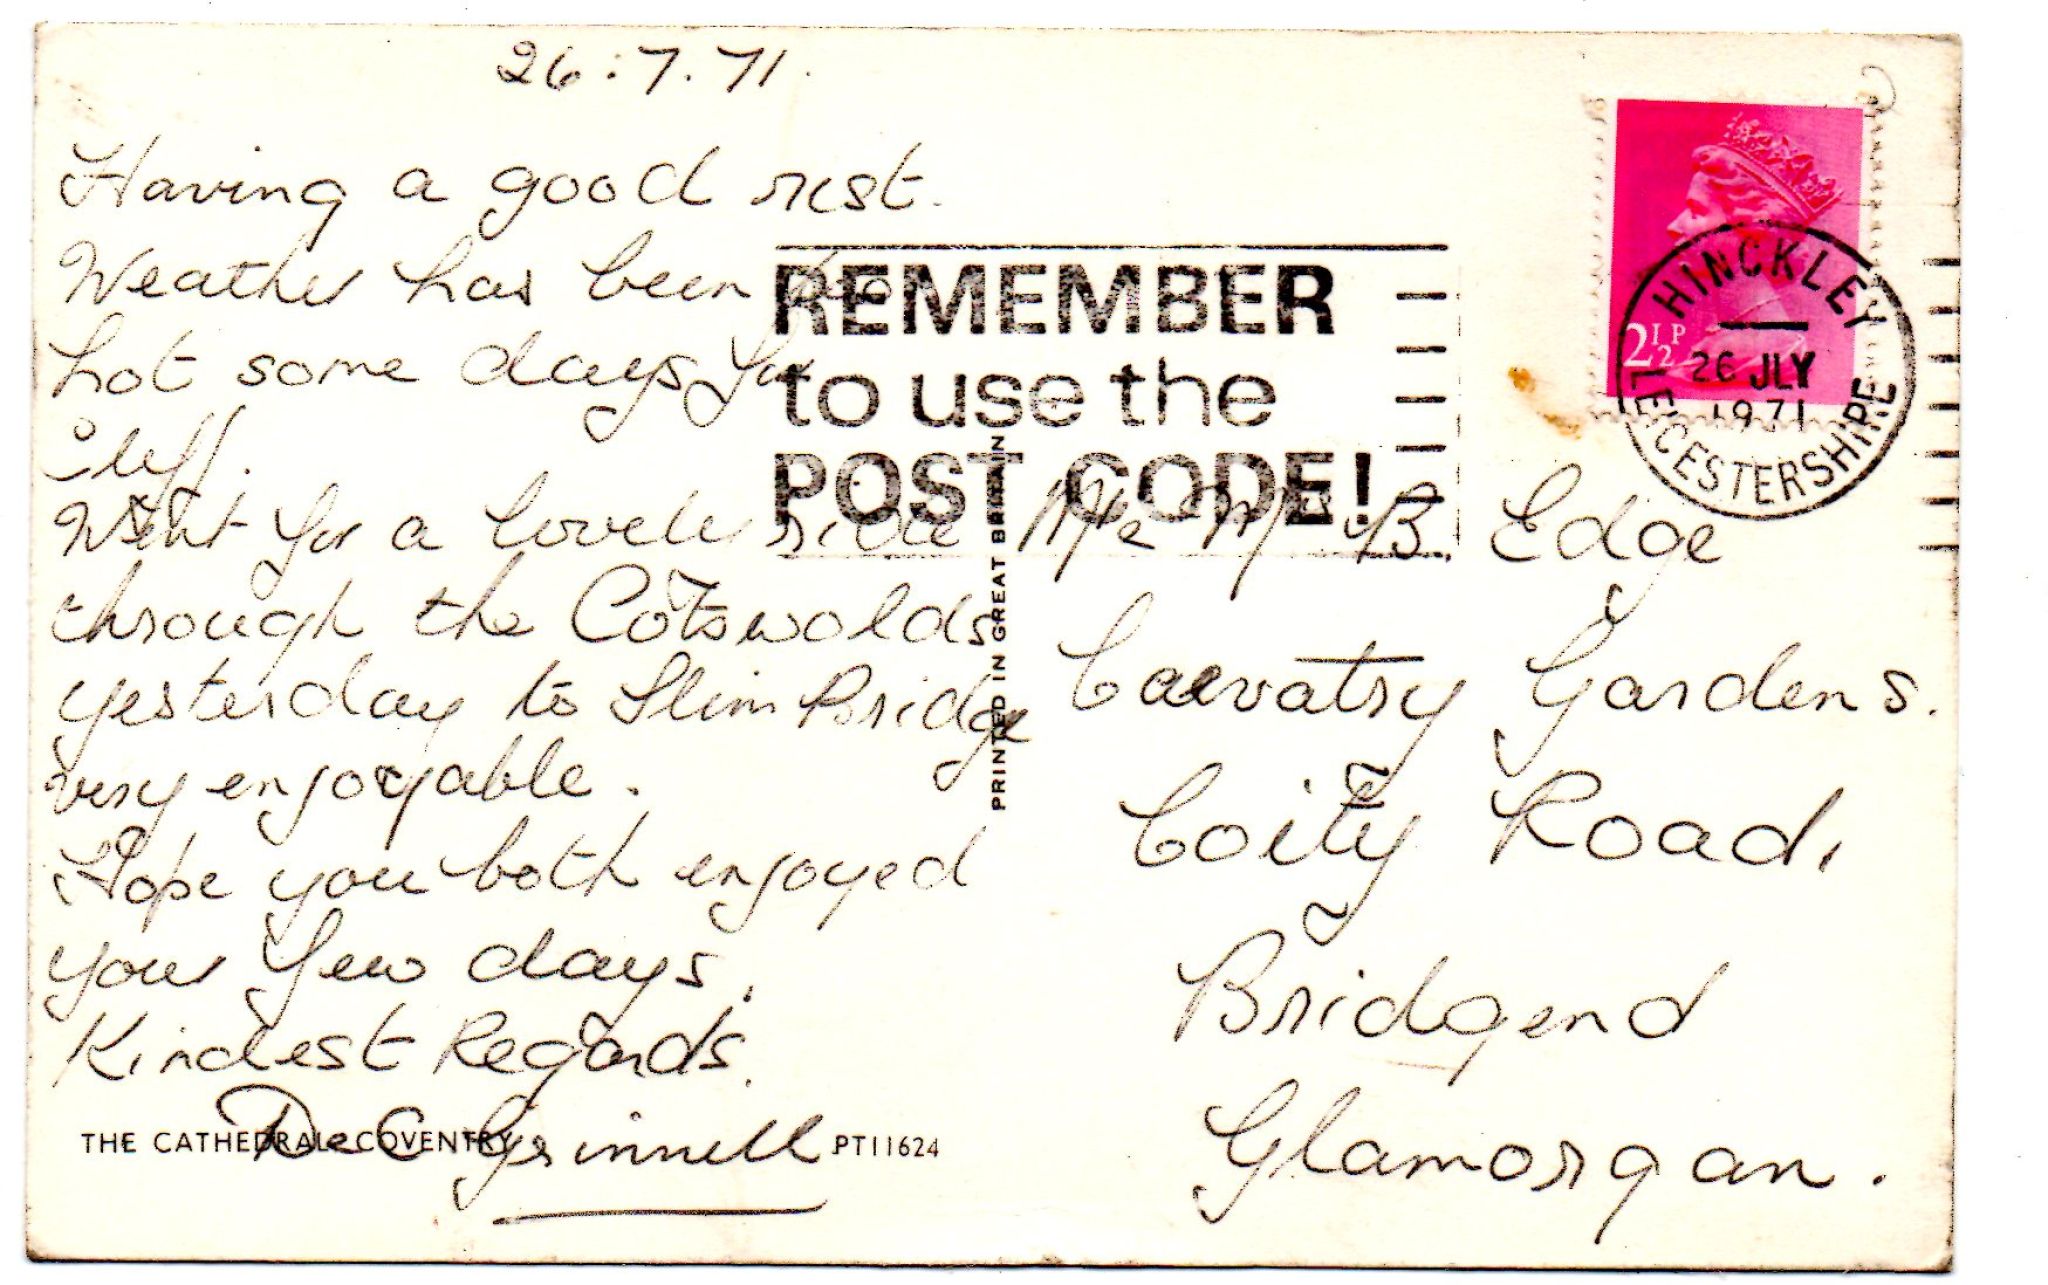 26.7.71.
Having a good rest.
Weather has been too
hot some days for
Cliff.
Went for a lovely ride
through the Cotswolds
yesterday to Slim Bridge
very enjoyable.
Hope you both enjoyed
your few days.
Kindest Regards.
Grinnell
THE CATHEDRAL COVENTRY PT11624
PRINTED IN GREAT BRITAIN
REMEMBER
to use the
POST CODE!
2½P
HINCKLEY
26 JLY
1971
LEICESTERSHIRE
B. Edge
Gardens.
Coity Road,
Bridgend
Glamorgan.